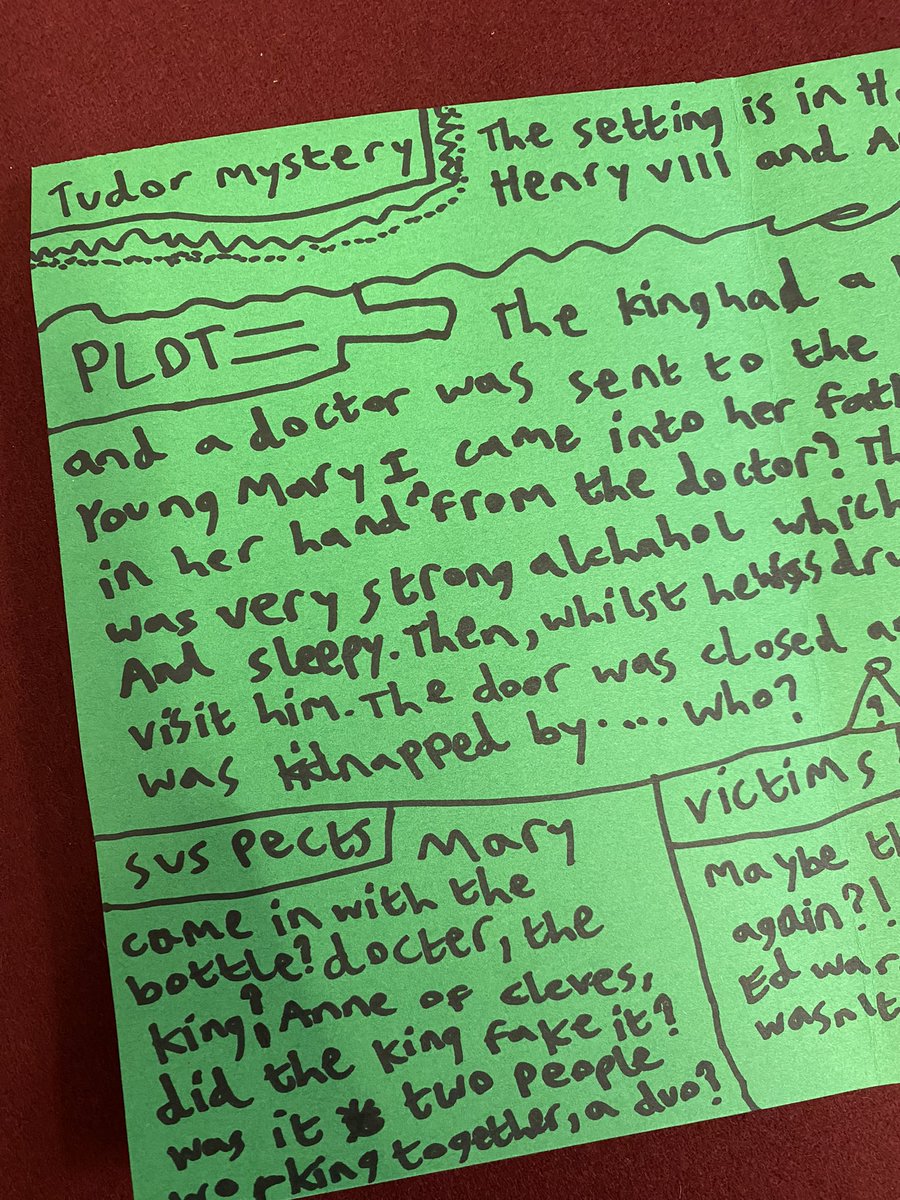 Tudor mystery
The setting is in H
Henry VIII and A
PLOT
The king had a
and a doctor was sent to the
Young Mary I came into her fath
in her hand from the doctor? Th
was very strong alchahol which
And sleepy. Then, whilst he was dru
visit him. The door was closed a
was kidnapped by.... who?
?
suspects
Mary
came in with the
bottle? docter, the
king?, Anne of cleves,
did the king fake it?
was it two people
working together, a duo?
victims
Maybe th
again?!
Edwar
wasn't